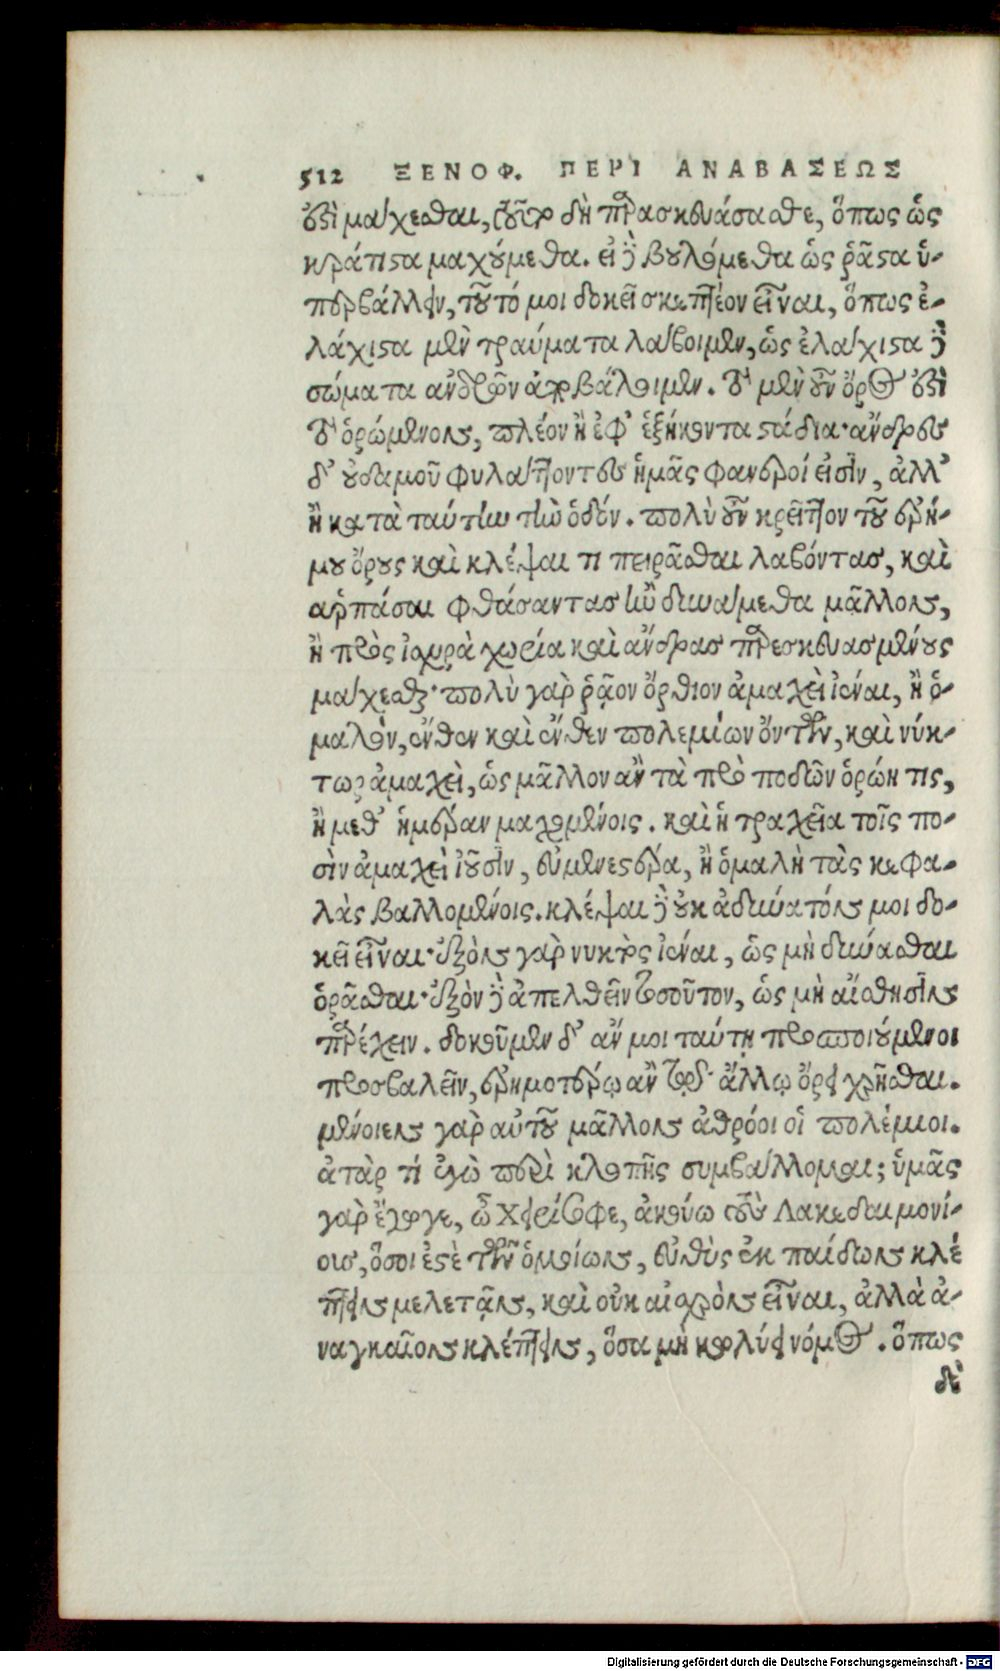 512 ΞΕΝΟΦ. ΠΕΡΙ ΑΝΑΒΑΣΕΩΣ
ἐστὶ μάχεσθαι, τοῦτο δὴ παρασκευάσασθε, ὅπως ὡς
κράτιστα μαχούμεθα. εἰ δὲ βουλόμεθα ὡς ῥᾶστα ὑ-
περβάλλειν, τοῦτό μοι δοκεῖ σκεπτέον εἶναι, ὅπως ἐ-
λάχιστα μὲν τραύματα λάβοιμεν, ὡς ἐλάχιστα δὲ
σώματα ἀνδρῶν ἀποβάλοιμεν. τὸ μὲν οὖν ὄρος ἐστὶ
τὸ ὁρώμενον, πλέον ἢ ἐφ' ἑξήκοντα στάδια· ἄνδρες
δ' οὐδαμοῦ φυλάττοντες ἡμᾶς φανεροί εἰσὶν, ἀλλ'
ἢ κατὰ ταύτην τὴν ὁδόν. πολὺ οὖν κρεῖττον τοῦ ἐρή-
μου ὄρους καὶ κλέψαι τι πειρᾶσθαι λαβόντας, καὶ
ἁρπάσαι φθάσαντας ἢν δυναίμεθα μᾶλλον,
ἢ πρὸς ἰσχυρὰ χωρία καὶ ἄνδρας παρεσκευασμένους
μάχεσθαι· πολὺ γὰρ ῥᾷον ὄρθιον ἀμαχεὶ ἰέναι, ἢ ὁ-
μαλὸν, ἔνθεν καὶ ἔνθεν πολεμίων ὄντων, καὶ νύκ-
τωρ ἀμαχεὶ, ὡς μᾶλλον ἂν τὰ πρὸ ποδῶν ὁρώη τις,
ἢ μεθ' ἡμέραν μαχομένοις. καὶ ἡ τραχεῖα τοῖς πο-
σὶν ἀμαχεὶ ἰοῦσιν, εὐμενεστέρα, ἢ ὁμαλὴ τὰς κεφα-
λὰς βαλλομένοις. κλέψαι δὲ οὐκ ἀδύνατόν μοι δο-
κεῖ εἶναι· ἐξὸν γὰρ νυκτὸς ἰέναι, ὡς μὴ δύνασθαι
ὁρᾶσθαι· ἐξὸν δὲ ἀπελθεῖν τοσοῦτον, ὡς μὴ αἴσθησιν
παρέχειν. δοκοῦμεν δ' ἄν μοι ταύτῃ προσποιούμενοι
προσβαλεῖν, ἐρημοτέρῳ ἂν τῷδ' ἄλλῳ ὄρει χρῆσθαι.
μένοιεν γὰρ αὐτοῦ μᾶλλον ἀθρόοι οἱ πολέμιοι.
ἀτὰρ τί ἐγὼ περὶ κλοπῆς συμβάλλομαι; ὑμᾶς
γὰρ ἔγωγε, ὦ Χειρίσοφε, ἀκούω τοὺς Λακεδαιμονί-
οις, ὅσοι ἐστὲ τῶν ὁμοίων, εὐθὺς ἐκ παίδων κλέ
πτειν μελετᾷν, καὶ οὐκ αἰσχρὸν εἶναι, ἀλλὰ ἀ-
ναγκαῖον κλέπτειν, ὅσα μὴ κωλύει νόμος. ὅπως
δὲ
Digitalisierung gefördert durch die Deutsche Forschungsgemeinschaft - DFG